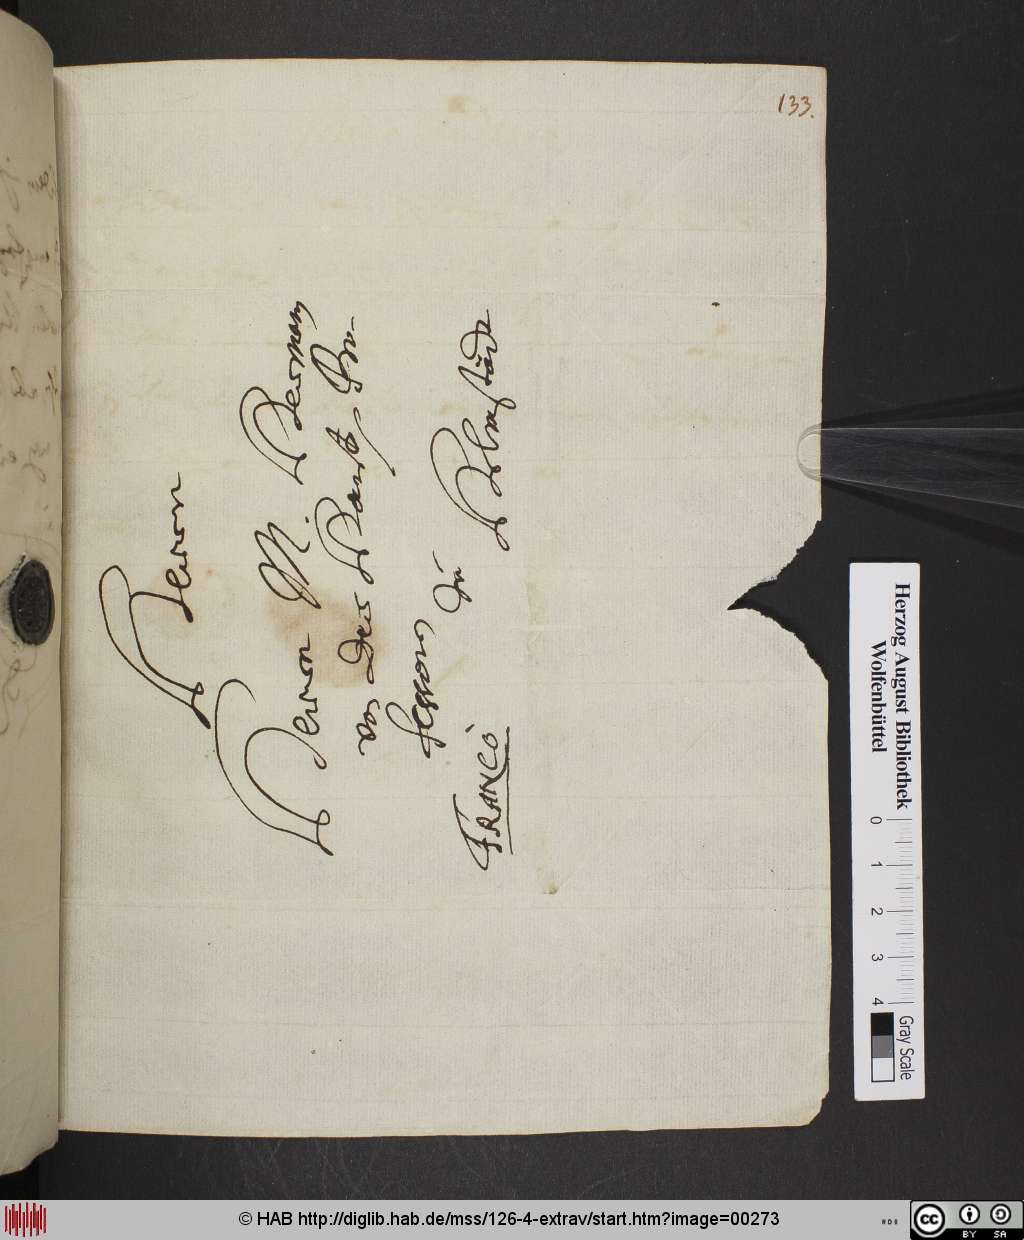 133.
Herrn
Herrn M. Herman
von der Hardt, Pro-
fessorn zu Helmstädt
FRANCÒ
Herzog August Bibliothek
Wolfenbüttel
0 1 2 3 4
Gray Scale
© HAB http://diglib.hab.de/mss/126-4-extrav/start.htm?image=00273
cc BY SA